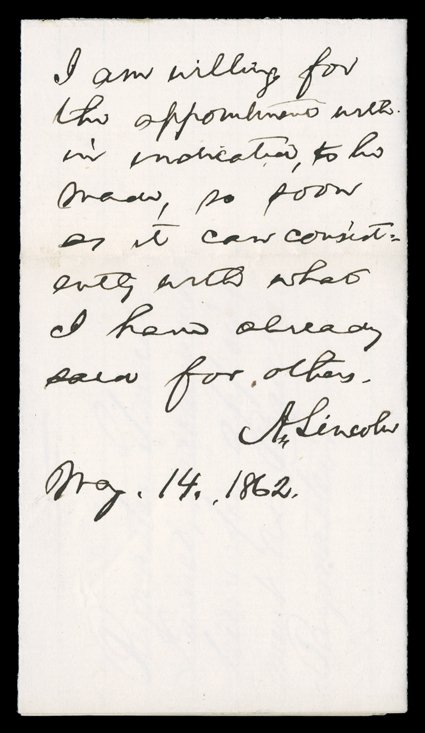 I am willing for
the appointment with-
in indicated, to be
made, so soon
as it can consist=
ently with what
I have already
said for others.
A. Lincoln
May. 14. 1862.